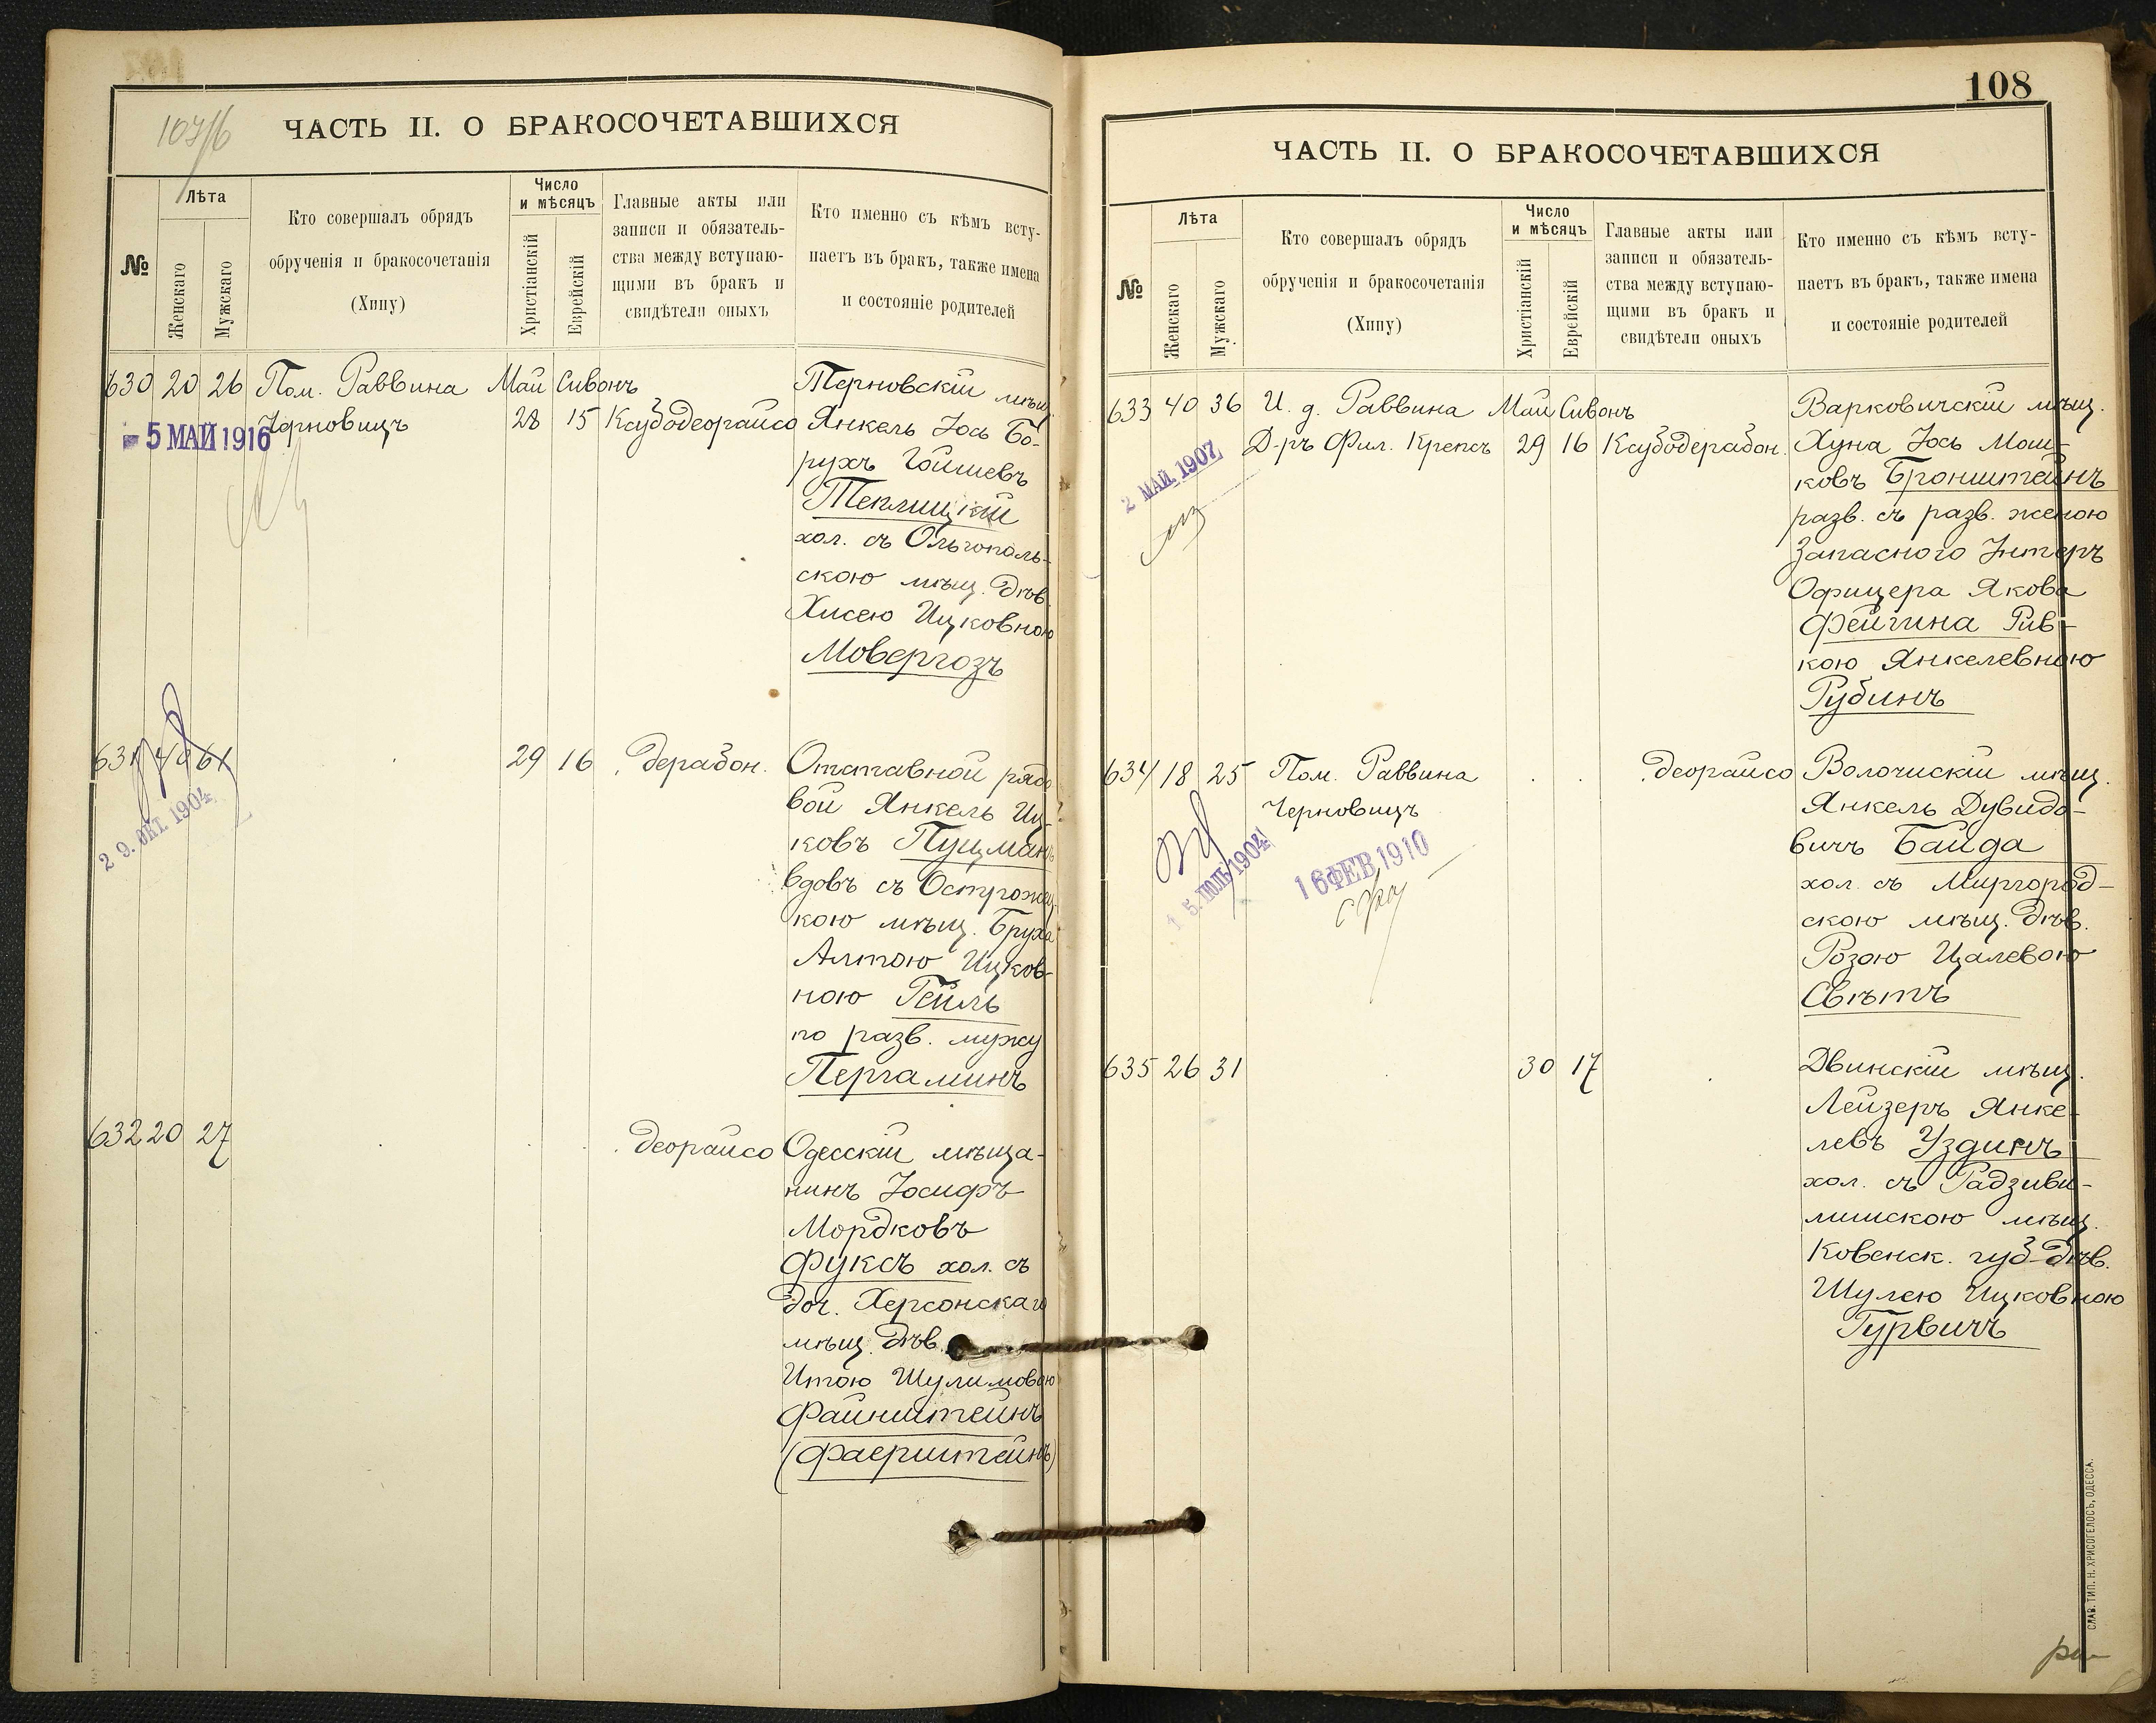 ЧАСТЬ II. О БРАКОСОЧЕТАВШИХСЯ
№
Лѣта
Женскаго
Мужскаго
Кто совершалъ обрядъ
обрученія и бракосочетанія
(Хипу)
Число
и мѣсяцъ
Христіанскій
Еврейскій
Главные акты или
записи и обязатель-
ства между вступаю-
щими въ бракъ и
свидѣтели оныхъ
Кто именно съ кѣмъ всту-
паетъ въ бракъ, также имена
и состояніе родителей
630 20 26 Пом. Раввина Май Сивонъ
Черновицъ 28 15 Ксубодеорайсо
- 5 МАЙ 1916
Терновскій мѣщ.
Янкель Іось Бо-
рухъ Гойшевъ
Теплицкій
хол. съ Ольгополь-
скою мѣщ. дѣв.
Хисею Ицковною
Мовергозъ
631 40 61 29 16 дерабон.
2 9. ОКТ. 1904
Отставной рядо
вой Янкель Иц-
ковъ Пуцманъ
вдовъ съ Острожец-
кою мѣщ. Бруха
Алтою Ицков-
ною Гейль
по разв. мужу
Пергаминъ
632 20 27 деорайсо
Одесскій мѣща-
нинъ Іосифъ
Мордковъ
Фуксъ хол. съ
доч. Херсонскаго
мѣщ. дѣв.
Итою Шулимовою
Файнштейнъ
(Фаерштейнъ)
108
ЧАСТЬ II. О БРАКОСОЧЕТАВШИХСЯ
№
Лѣта
Женскаго
Мужскаго
Кто совершалъ обрядъ
обрученія и бракосочетанія
(Хипу)
Число
и мѣсяцъ
Христіанскій
Еврейскій
Главные акты или
записи и обязатель-
ства между вступаю-
щими въ бракъ и
свидѣтели оныхъ
Кто именно съ кѣмъ всту-
паетъ въ бракъ, также имена
и состояніе родителей
633 40 36 И. д. Раввина Май Сивонъ
Д-ръ Фил. Крепсъ 29 16 Ксубодерабон.
2 МАЙ 1907
Варковичскій мѣщ.
Хуна Іось Мош-
ковъ Бронштейнъ
разв. съ разв. женою
Запасного Унтеръ
Офицера Якова
Фейгина Рив-
кою Янкелевною
Рубинъ
634 18 25 Пом. Раввина деорайсо
Черновицъ
1 5. ІЮЛЬ 1904
1 6 ФЕВ 1910
Волочискій мѣщ.
Янкель Дувидо-
вичъ Байда
хол. съ Миргород-
скою мѣщ. дѣв.
Розою Цалевою
Свѣтъ
635 26 31 30 17
Двинскій мѣщ.
Лейзеръ Янке-
левъ Уздинъ
хол. съ Радзиви-
лишскою мѣщ.
Ковенск. губ. дѣв.
Шулею Ицковною
Гурвичъ
СЛАВ. ТИП. Н. ХРИСОГЕЛОСЪ, ОДЕССА.